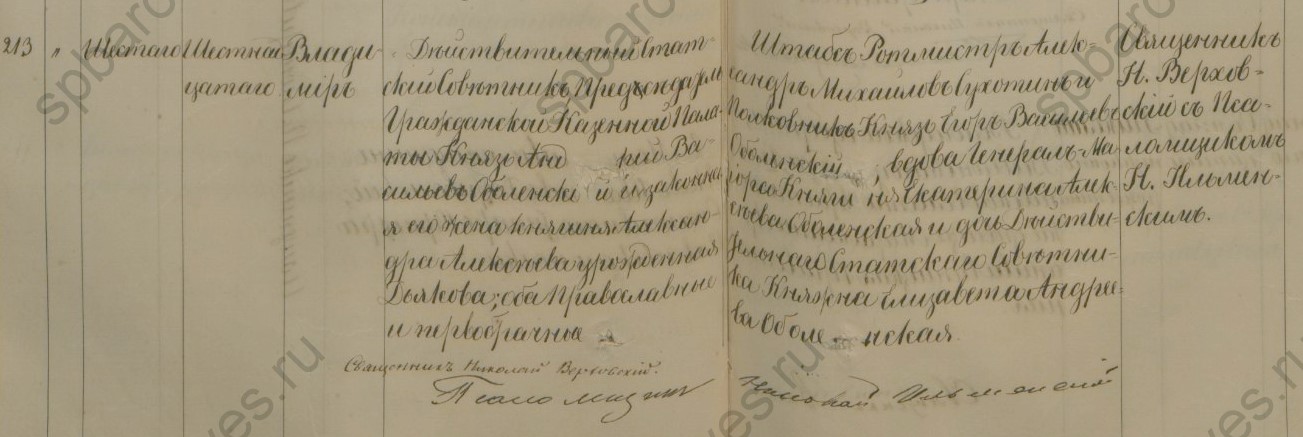 213 " Шестаго Шестнад-
цатаго Влади-
міръ
Дѣйствительный Стат-
скій Совѣтникъ, Предсѣдатель
Гражданской Казенной Пала-
ты Князь Анд рей Ва-
сильевъ Оболенскі й и законна
я его жена княгиня Алексан-
дра Алексѣева урожденная
Дьякова; оба Православные
и первобрачные
Штабсъ Ротмистръ Алек-
сандръ Михайловъ Сухотинъ и
Полковникъ Князь Егоръ Васильевъ
Оболенскій; вдова Генералъ-Ма-
іора Княги ня Екатерина Алек-
сѣева Оболенская и дочь Дѣйстви-
тельнаго Статскаго Совѣтни-
ка Княжна Елизавета Андрее-
ва Оболе нская
Священникъ
Н. Верхов-
скій съ Пса-
ломщикомъ
Н. Ильмен-
скимъ.
Священникъ Николай Верховскій.
Псаломщикъ Николай Ильменскій
spbarchives.ru